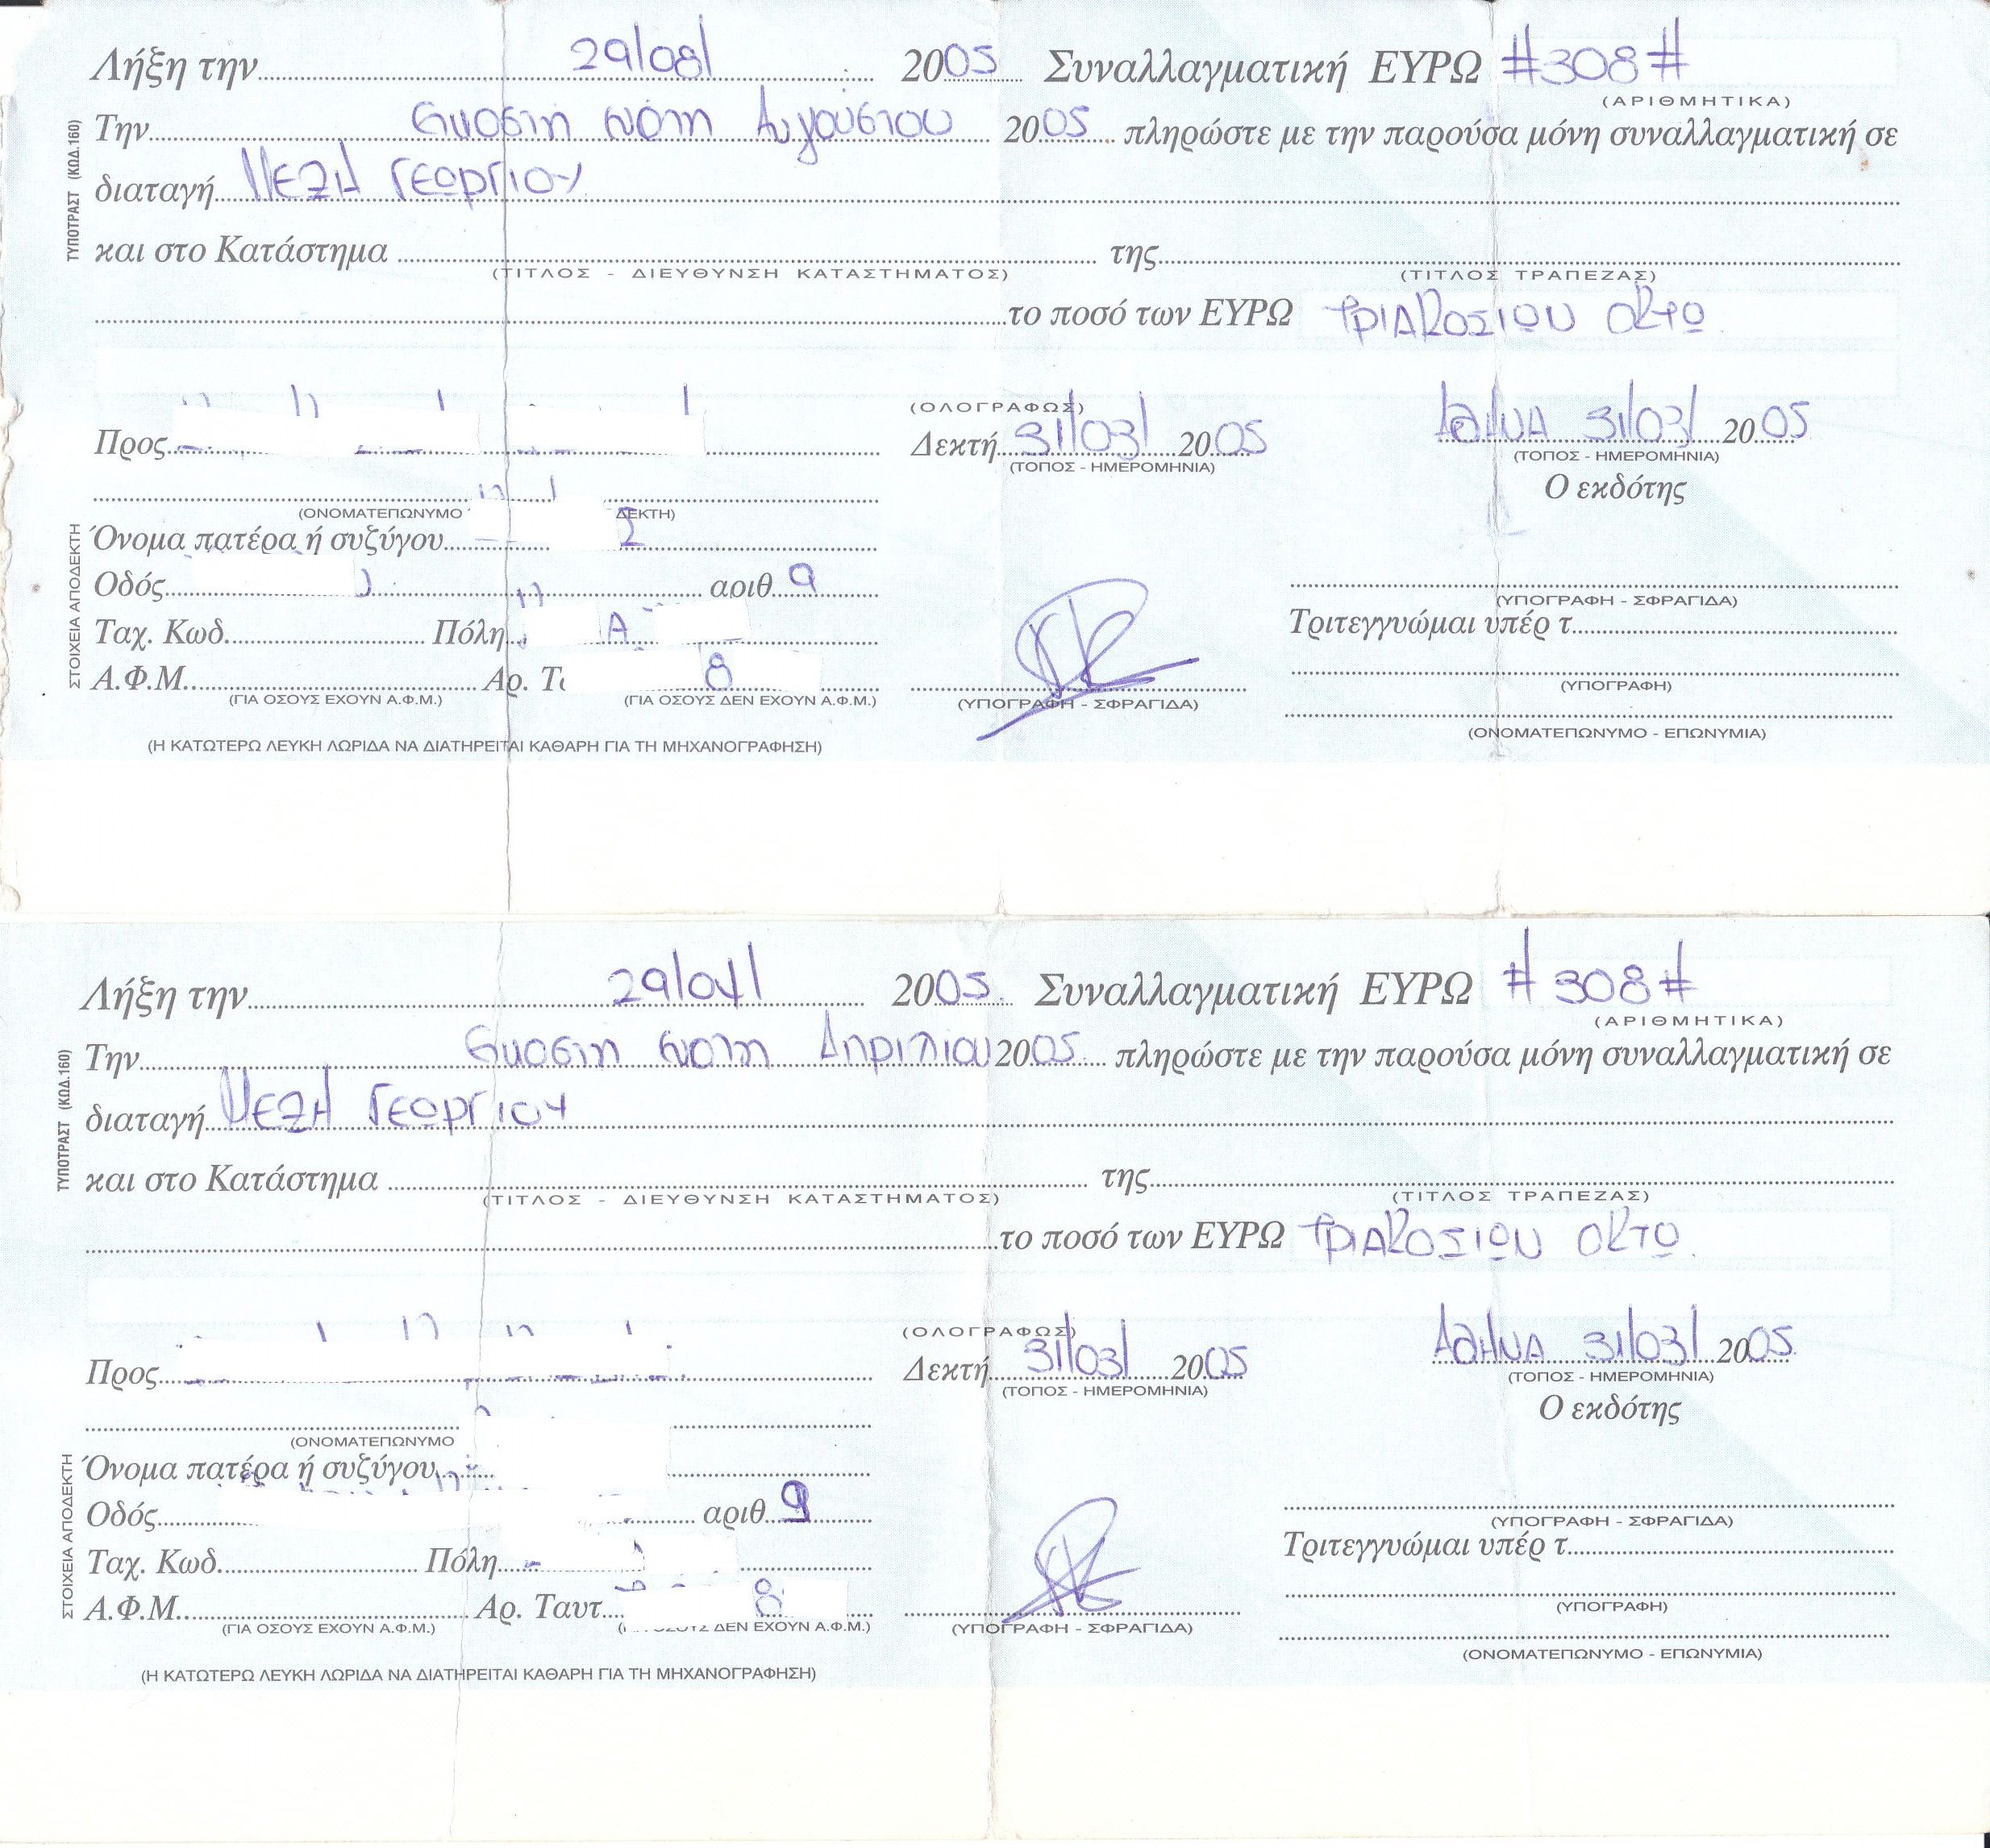 Λήξη την 29/08/ 2005 Συναλλαγματική ΕΥΡΩ #308#
(ΑΡΙΘΜΗΤΙΚΑ)
Την εικοστή ενάτη Αυγούστου 2005 πληρώστε με την παρούσα μόνη συναλλαγματική σε
διαταγή ΜΕΞΗ ΓΕΩΡΓΙΟΥ
και στο Κατάστημα της
(ΤΙΤΛΟΣ - ΔΙΕΥΘΥΝΣΗ ΚΑΤΑΣΤΗΜΑΤΟΣ) (ΤΙΤΛΟΣ ΤΡΑΠΕΖΑΣ)
το ποσό των ΕΥΡΩ ΤΡΙΑΚΟΣΙΩΝ ΟΚΤΩ
(ΟΛΟΓΡΑΦΩΣ)
Προς Δεκτή 31/03/ 2005 ΑΘΗΝΑ 31/03/ 2005
(ΤΟΠΟΣ - ΗΜΕΡΟΜΗΝΙΑ) (ΤΟΠΟΣ - ΗΜΕΡΟΜΗΝΙΑ)
Ο εκδότης
(ΟΝΟΜΑΤΕΠΩΝΥΜΟ ΔΕΚΤΗ)
Όνομα πατέρα ή συζύγου
Οδός αριθ. 9
(ΥΠΟΓΡΑΦΗ - ΣΦΡΑΓΙΔΑ)
Ταχ. Κωδ. Πόλη Α Τριτεγγυώμαι υπέρ τ
Α.Φ.Μ. Αρ. Τ 8
(ΥΠΟΓΡΑΦΗ)
(ΓΙΑ ΟΣΟΥΣ ΕΧΟΥΝ Α.Φ.Μ.) (ΓΙΑ ΟΣΟΥΣ ΔΕΝ ΕΧΟΥΝ Α.Φ.Μ.) (ΥΠΟΓΡΑΦΗ - ΣΦΡΑΓΙΔΑ)
(ΟΝΟΜΑΤΕΠΩΝΥΜΟ - ΕΠΩΝΥΜΙΑ)
(Η ΚΑΤΩΤΕΡΩ ΛΕΥΚΗ ΛΩΡΙΔΑ ΝΑ ΔΙΑΤΗΡΕΙΤΑΙ ΚΑΘΑΡΗ ΓΙΑ ΤΗ ΜΗΧΑΝΟΓΡΑΦΗΣΗ)
ΤΥΠΟΤΡΑΣΤ (ΚΩΔ.160)
ΣΤΟΙΧΕΙΑ ΑΠΟΔΕΚΤΗ
Λήξη την 29/04/ 2005 Συναλλαγματική ΕΥΡΩ #308#
(ΑΡΙΘΜΗΤΙΚΑ)
Την εικοστή ενάτη Απριλίου 2005 πληρώστε με την παρούσα μόνη συναλλαγματική σε
διαταγή ΜΕΞΗ ΓΕΩΡΓΙΟΥ
και στο Κατάστημα της
(ΤΙΤΛΟΣ - ΔΙΕΥΘΥΝΣΗ ΚΑΤΑΣΤΗΜΑΤΟΣ) (ΤΙΤΛΟΣ ΤΡΑΠΕΖΑΣ)
το ποσό των ΕΥΡΩ ΤΡΙΑΚΟΣΙΩΝ ΟΚΤΩ
(ΟΛΟΓΡΑΦΩΣ)
Προς Δεκτή 31/03/ 2005 ΑΘΗΝΑ 31/03/ 2005
(ΤΟΠΟΣ - ΗΜΕΡΟΜΗΝΙΑ) (ΤΟΠΟΣ - ΗΜΕΡΟΜΗΝΙΑ)
Ο εκδότης
(ΟΝΟΜΑΤΕΠΩΝΥΜΟ
Όνομα πατέρα ή συζύγου
Οδός αριθ. 9
(ΥΠΟΓΡΑΦΗ - ΣΦΡΑΓΙΔΑ)
Ταχ. Κωδ. Πόλη Τριτεγγυώμαι υπέρ τ
Α.Φ.Μ. Αρ. Ταυτ. 8
(ΥΠΟΓΡΑΦΗ)
(ΓΙΑ ΟΣΟΥΣ ΕΧΟΥΝ Α.Φ.Μ.) ΔΕΝ ΕΧΟΥΝ Α.Φ.Μ.) (ΥΠΟΓΡΑΦΗ - ΣΦΡΑΓΙΔΑ)
(ΟΝΟΜΑΤΕΠΩΝΥΜΟ - ΕΠΩΝΥΜΙΑ)
(Η ΚΑΤΩΤΕΡΩ ΛΕΥΚΗ ΛΩΡΙΔΑ ΝΑ ΔΙΑΤΗΡΕΙΤΑΙ ΚΑΘΑΡΗ ΓΙΑ ΤΗ ΜΗΧΑΝΟΓΡΑΦΗΣΗ)
ΤΥΠΟΤΡΑΣΤ (ΚΩΔ.160)
ΣΤΟΙΧΕΙΑ ΑΠΟΔΕΚΤΗ